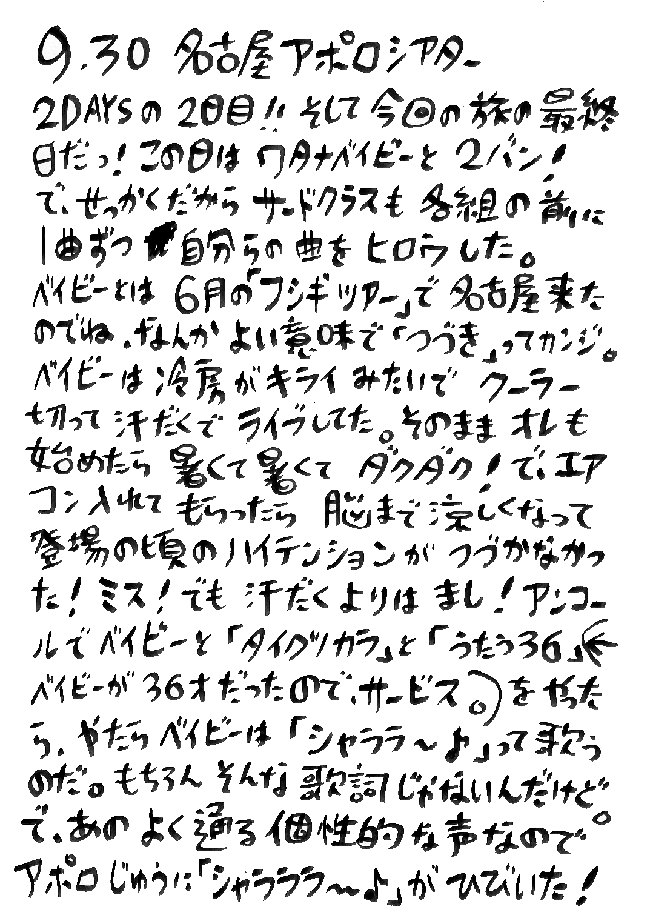 9.30 名古屋アポロシアター
2DAYSの2日目!! そして今回の旅の最終
日だっ!この日はワタナベイビーと2バン!
で、せっかくだからサードクラスも各組の前に
1曲ずつ 自分らの曲をヒロウした。
ベイビーとは6月の「フシギツアー」で名古屋来た
のでね、なんかよい意味で「つづき」ってカンジ。
ベイビーは冷房がキライみたいでクーラー
切って汗だくでライブしてた。そのままオレも
始めたら暑くて暑くてダクダク!で、エア
コン入れてもらったら脳まで涼しくなって
登場の頃のハイテンションがつづかなかっ
た!ミス!でも汗だくよりはまし!アンコー
ルでベイビーと「タイクツカラ」と「うたう36」(←
ベイビーが36才だったので、サービス。)をやった
ら、やたらベイビーは「シャララ〜♪」って歌う
のだ。もちろんそんな歌詞じゃないんだけど
で、あのよく通る個性的な声なので。
アポロじゅうに「シャラララ〜♪」がひびいた!